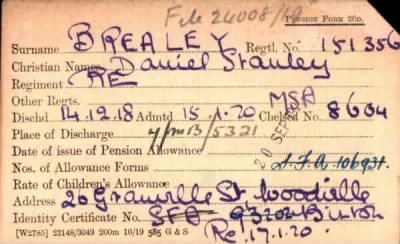 File 24008/19
PENSION FORM 26D.
Surname BREALEY Regtl. No. 151356
Christian Names Daniel Stanley
Regiment RE
Other Regts. MSA
Dischd 14.12.18 Admtd 15.1.20 Chelsea No. 8604
Place of Discharge 4/MB/5321
Date of issue of Pension Allowance 20 SEP
Nos. of Allowance Forms S.F.A. 106931.
Rate of Children's Allowance
Address 20 Granville St Woodville
Identity Certificate No. SFA 93202 Burton
[W2785] 23148/3049 200m 10/19 585 G & S Re. 17.1.20.